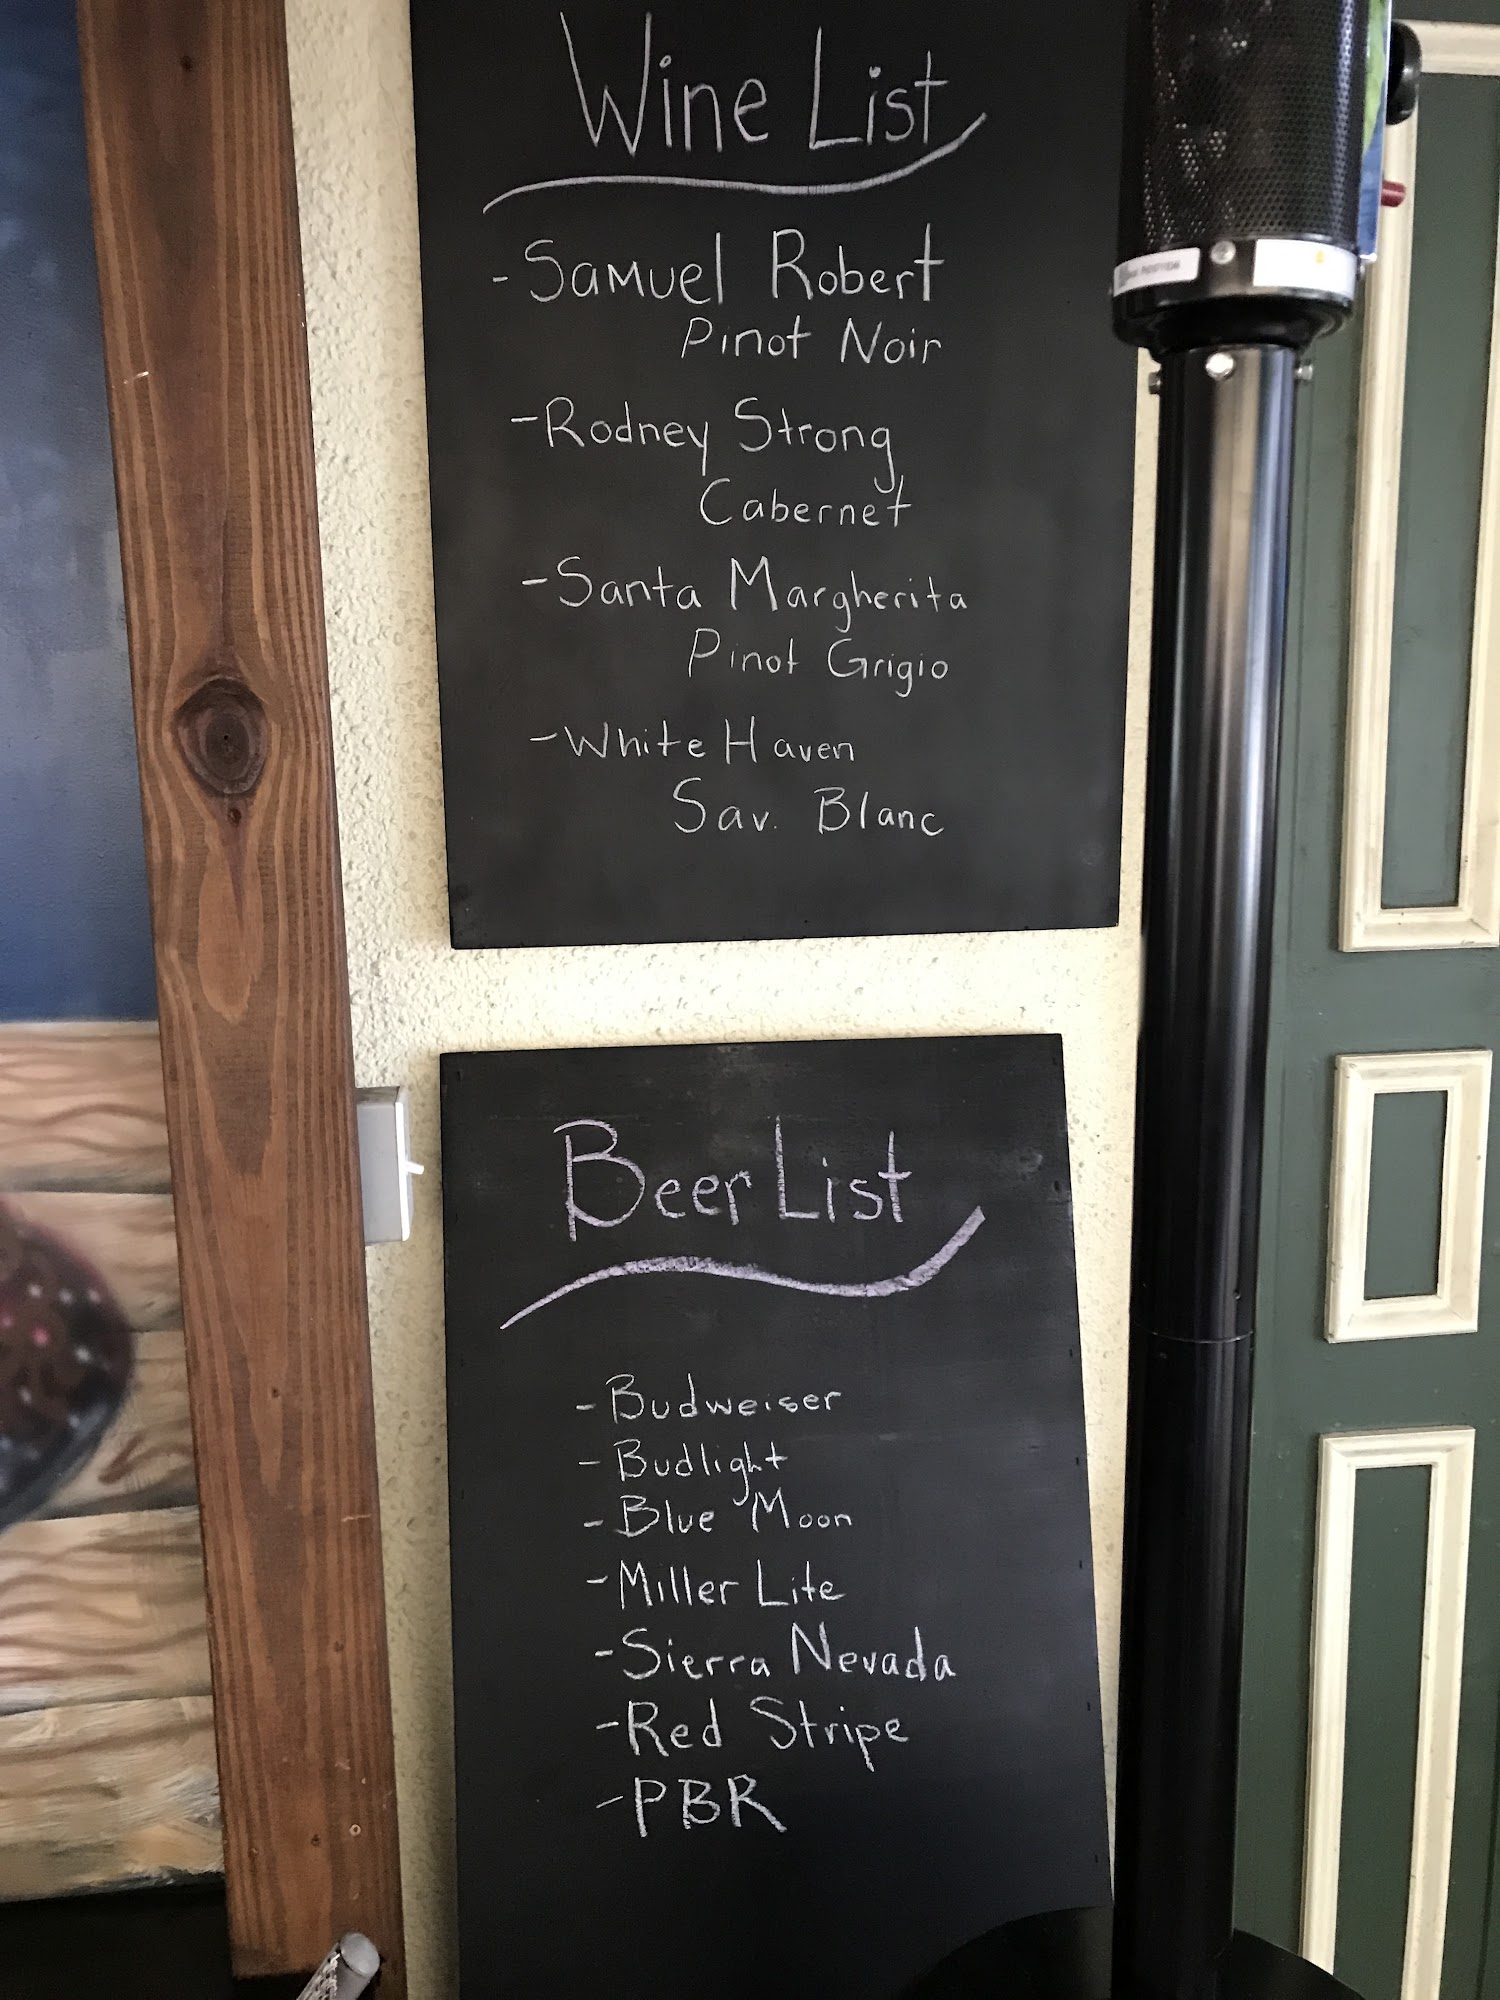 Wine List
- Samuel Robert
Pinot Noir
- Rodney Strong
Cabernet
- Santa Margherita
Pinot Grigio
- White Haven
Sav. Blanc
Beer List
- Budweiser
- Budlight
- Blue Moon
- Miller Lite
- Sierra Nevada
- Red Stripe
- PBR